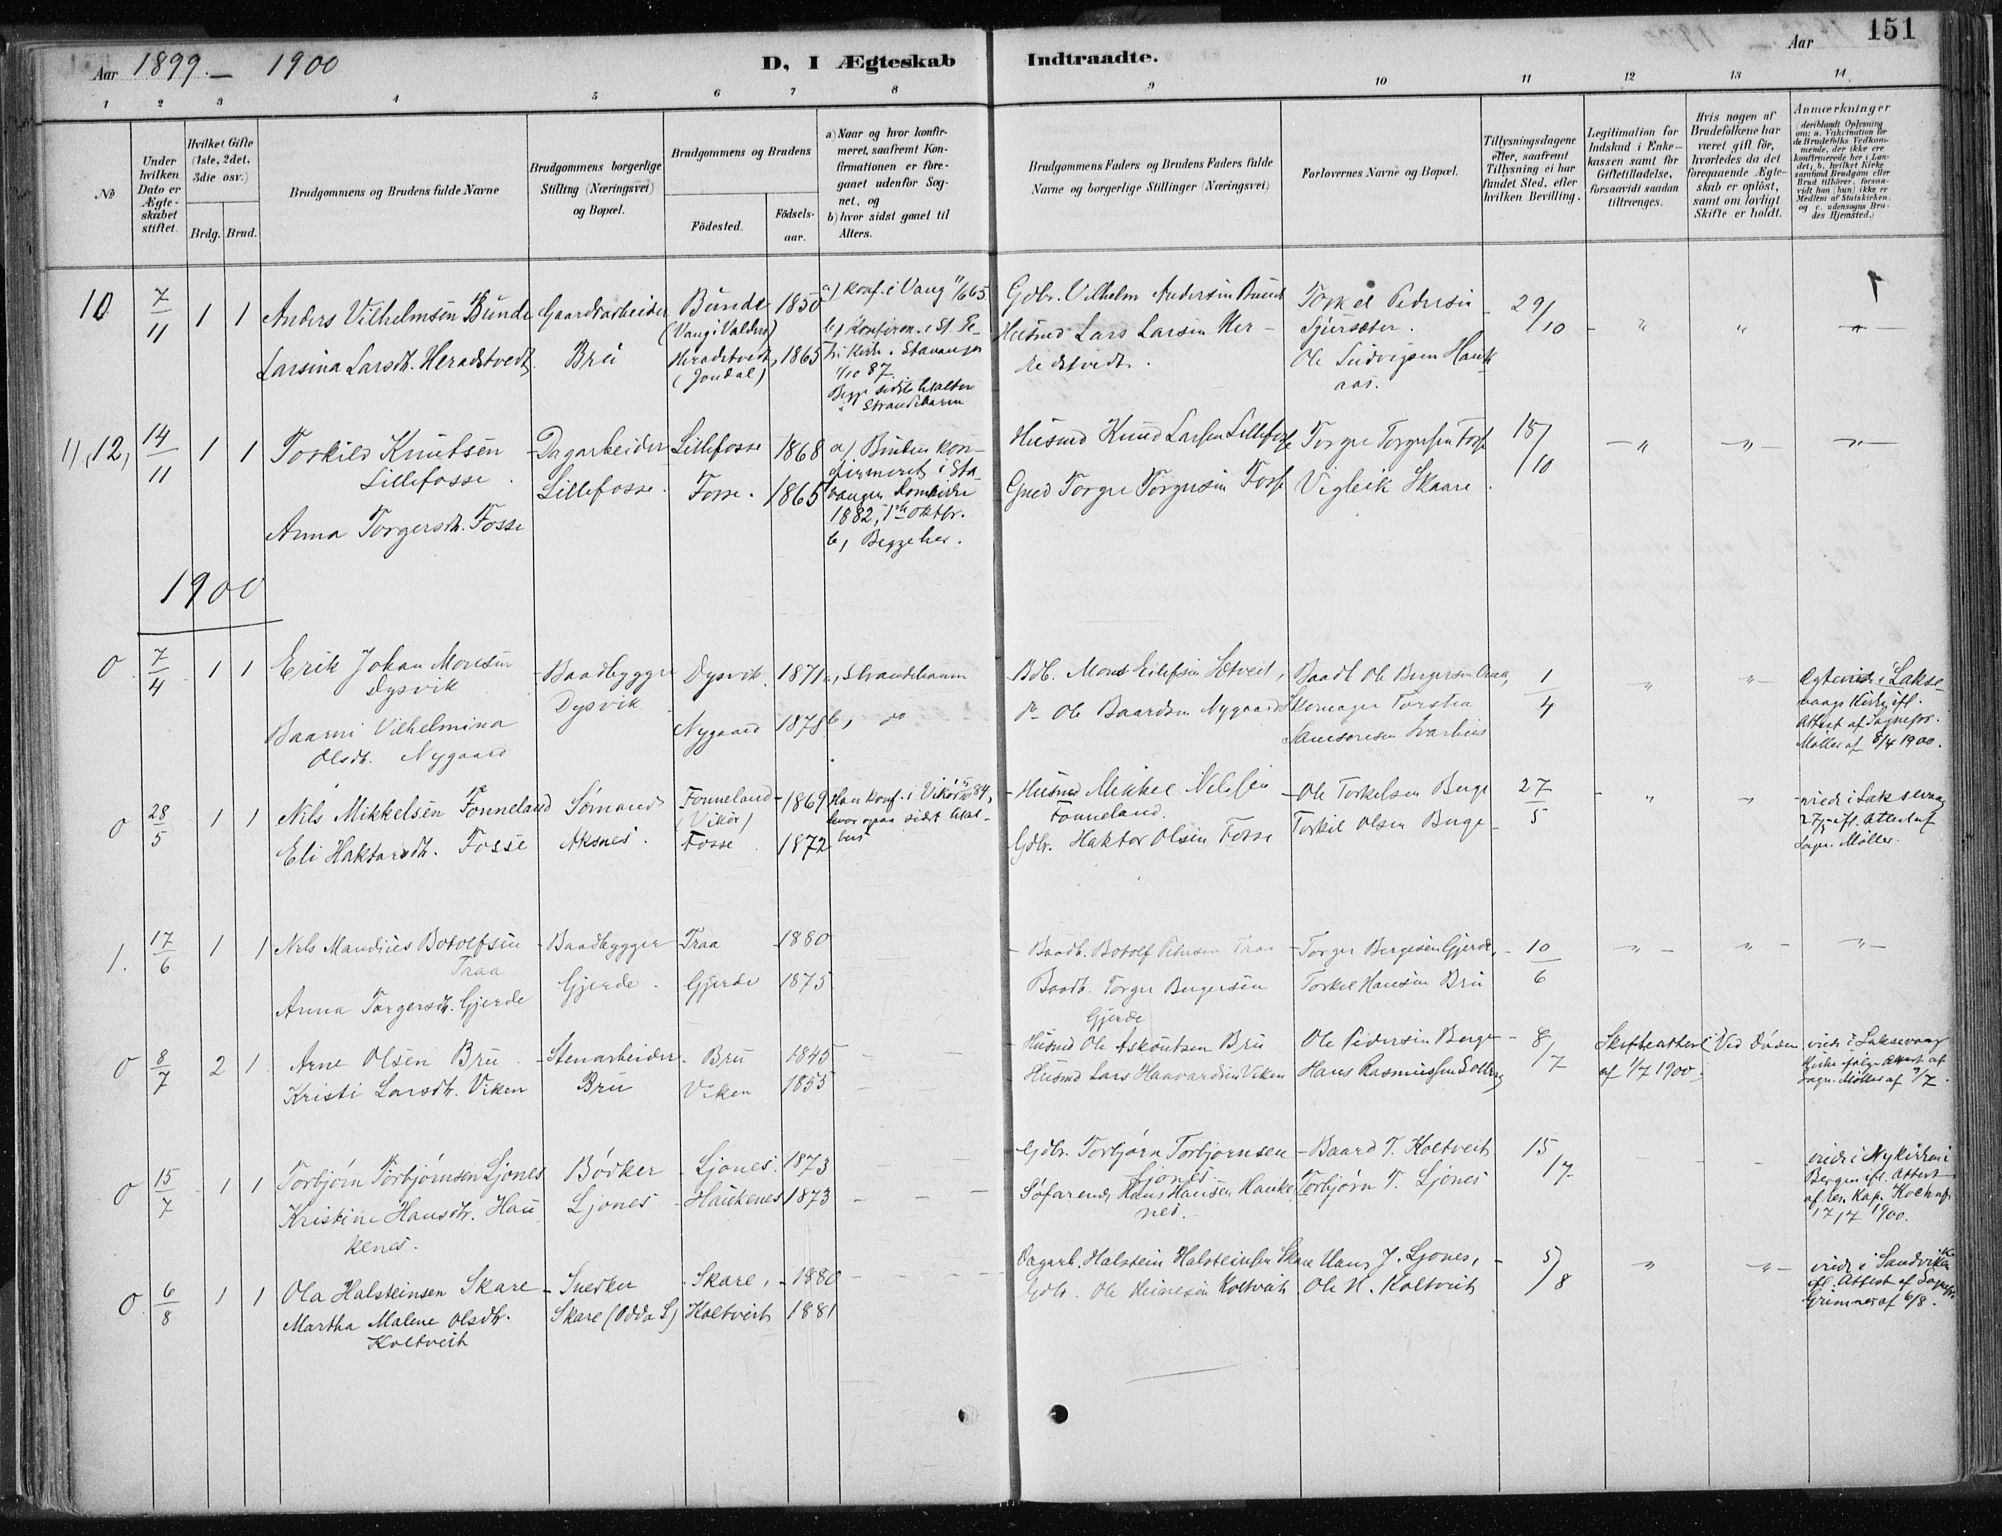 151
Aar 1899 — 1900
D, I Ægteskab
Indtraadte.
Aar
1 2 3 4 5 6 7 8 9 10 11 12 13 14
№
Under hvilken Dato er Ægteskabet stiftet.
Hvilket Gifte (1ste, 2det, 3die osv.)
Brdg. Brud.
Brudgommens og Brudens fulde Navne
Brudgommens borgerlige Stilling (Næringsvei) og Bopæl.
Brudgommens og Brudens
Födested.
Födselsaar.
a) Naar og hvor konfirmeret, saafremt Konfirmationen er foregaaet udenfor Sognet, og
b) hvor sidst gaaet til Alters.
Brudgommens Faders og Brudens Faders fulde Navne og borgerlige Stillinger (Næringsvei)
Forlovernes Navne og Bopæl.
Tillysningsdagene eller, saafremt Tillysning ei har fundet Sted, efter hvilken Bevilling.
Legitimation for Indskud i Enkekassen samt for Giftetilladelse, forsaavidt saadan tiltrænges.
Hvis nogen af Brudefolkene har været gift før, hvorledes da det foregaaende Ægteskab er oplöst, samt om lovligt Skifte er holdt.
Anmærkninger
(deriblandt Oplysning om: a. Vakcination for de Brudefolks Vedkommende, der ikke ere konfirmerede her i Landet, b. hvilket Kirkesamfund Brudgom eller Brud tilhörer, forsaavidt han (hun) ikke er Medlem af Statskirken, og c. udensogns Brudes Hjemsted.)
10 7/11 1 1 Anders Vilhelmsen Bunde Gaardsarbeider Bunde (Vang i Valders) 1850 a) konf. i Vang 11/6 65. Gdbr. Vilhelm Andersen Bunde Torkel Pedersen Tjursæter. 29/10 " " "
Larsina Larsdt. Heradstvedt. Bru Heradstvedt (Jondal) 1865 b, Konfirm. i St. Petri Kirke i Stavanger 1/10 87. Begge sidst til Alters i Strandebarm Husmd Lars Larsen Heradstvedt. Ole Ludvigsen Haukaas.
11, 12, 14/11 1 1 Torkild Knutsen Lillefosse Dagarbeider Lillefosse 1868 a) Bruden konfirmeret i Stavanger Domkirke 1882, 1ste Oktbr. Husmd Knud Larsen Lillefosse Torger Torgersen Fosse 15/10 " " "
Anna Torgersdt. Fosse Lillefosse. Fosse. 1865 b, Begge her. Gmd Torger Torgersen Fosse Vigleik Skaare.
1900
0 7/4 1 1 Erik Johan Monsen Dysvik Baadbygger Dysvik Dysvik. 1871 a, Strandebarm Bdb. Mons Eilefsen Sætveit, Baadb Ole Bergersen Omaa, 1/4 " " Egteviede i Laksevaags Kirke ifl. Attest af Sognepr. Møller af 8/4 1900.
Baarni Vilhelmina Olsdt. Nygaard Nygaard 1878 b, do do Ole Baardsen Nygaard Skomager Torsten Samsonsen Svarhus
0 28/5 1 1 Nils Mikkelsen Fonneland Sømand Fonneland (Vikør) 1869 Han konf. i Vikør 84, hvor ogsaa sidst til Alters Husmd Mikkel Nilssen Fonneland. Ole Torkelsen Berge 27/5 " " viede i Laksevaag 27/5 ifl. Attest af Sogn. Møller.
Eli Haktorsdt. Fosse Aksnes. Fosse. 1872 Gdbr. Haktor Olsen Fosse Torkil Olsen Berge
1. 17/6 1 1 Nils Mandius Botolfsen Traa Baadbygger Traa 1880 Baadb. Botolf Petersen Traa Torger Bergesen Gjerde, 10/6 " " "
Anna Torgersdt. Gjerde Gjerde. Gjerde 1875 Baadb. Torger Bergersen Gjerde Torkel Hansen Bru
0 8/7 2 1 Arne Olsen Bru Stenarbeider Bru 1845 Husmd Ole Askoutsen Bru Ole Pedersen Berge 8/7 Skifteattest af 1/7 1900. Ved Døden viede i Laksevaag Kirke ifølge Attest af Sogn. Møller af 9/7.
Kristi Larsdt. Viken Bru Viken 1855 Husmd Lars Haavardsen Viken Hans Rasmussen Solberg
0 15/7 1 1 Torbjørn Torbjørnsen Ljones Bødker Ljones. 1873 Gdbr. Torbjørn Torbjørnsen Ljones Baard T. Koltveit 15/7 viede i Nykirken i Bergen ifl. Attest af res. Kap. Koch af 17/7 1900.
Kristine Hansdt. Haukenes. Ljones Haukenes 1873 Søfarende Hans Hansen Haukenes. Torbjørn T. Ljones
0. 6/8 1 1 Ola Halsteinsen Skare Snedker Skare, 1880 Dagarb. Halstein Halsteinsen Skare Hans J. Ljones, 5/8 " " viede i Sandviken ifl. Attest af Sognepr. Grimnes af 6/8.
Martha Malene Olsdt. Koltveit Skare (Odda S) Koltveit 1881 Gdbr. Ole Heinesen Koltveit Ole H. Koltveit